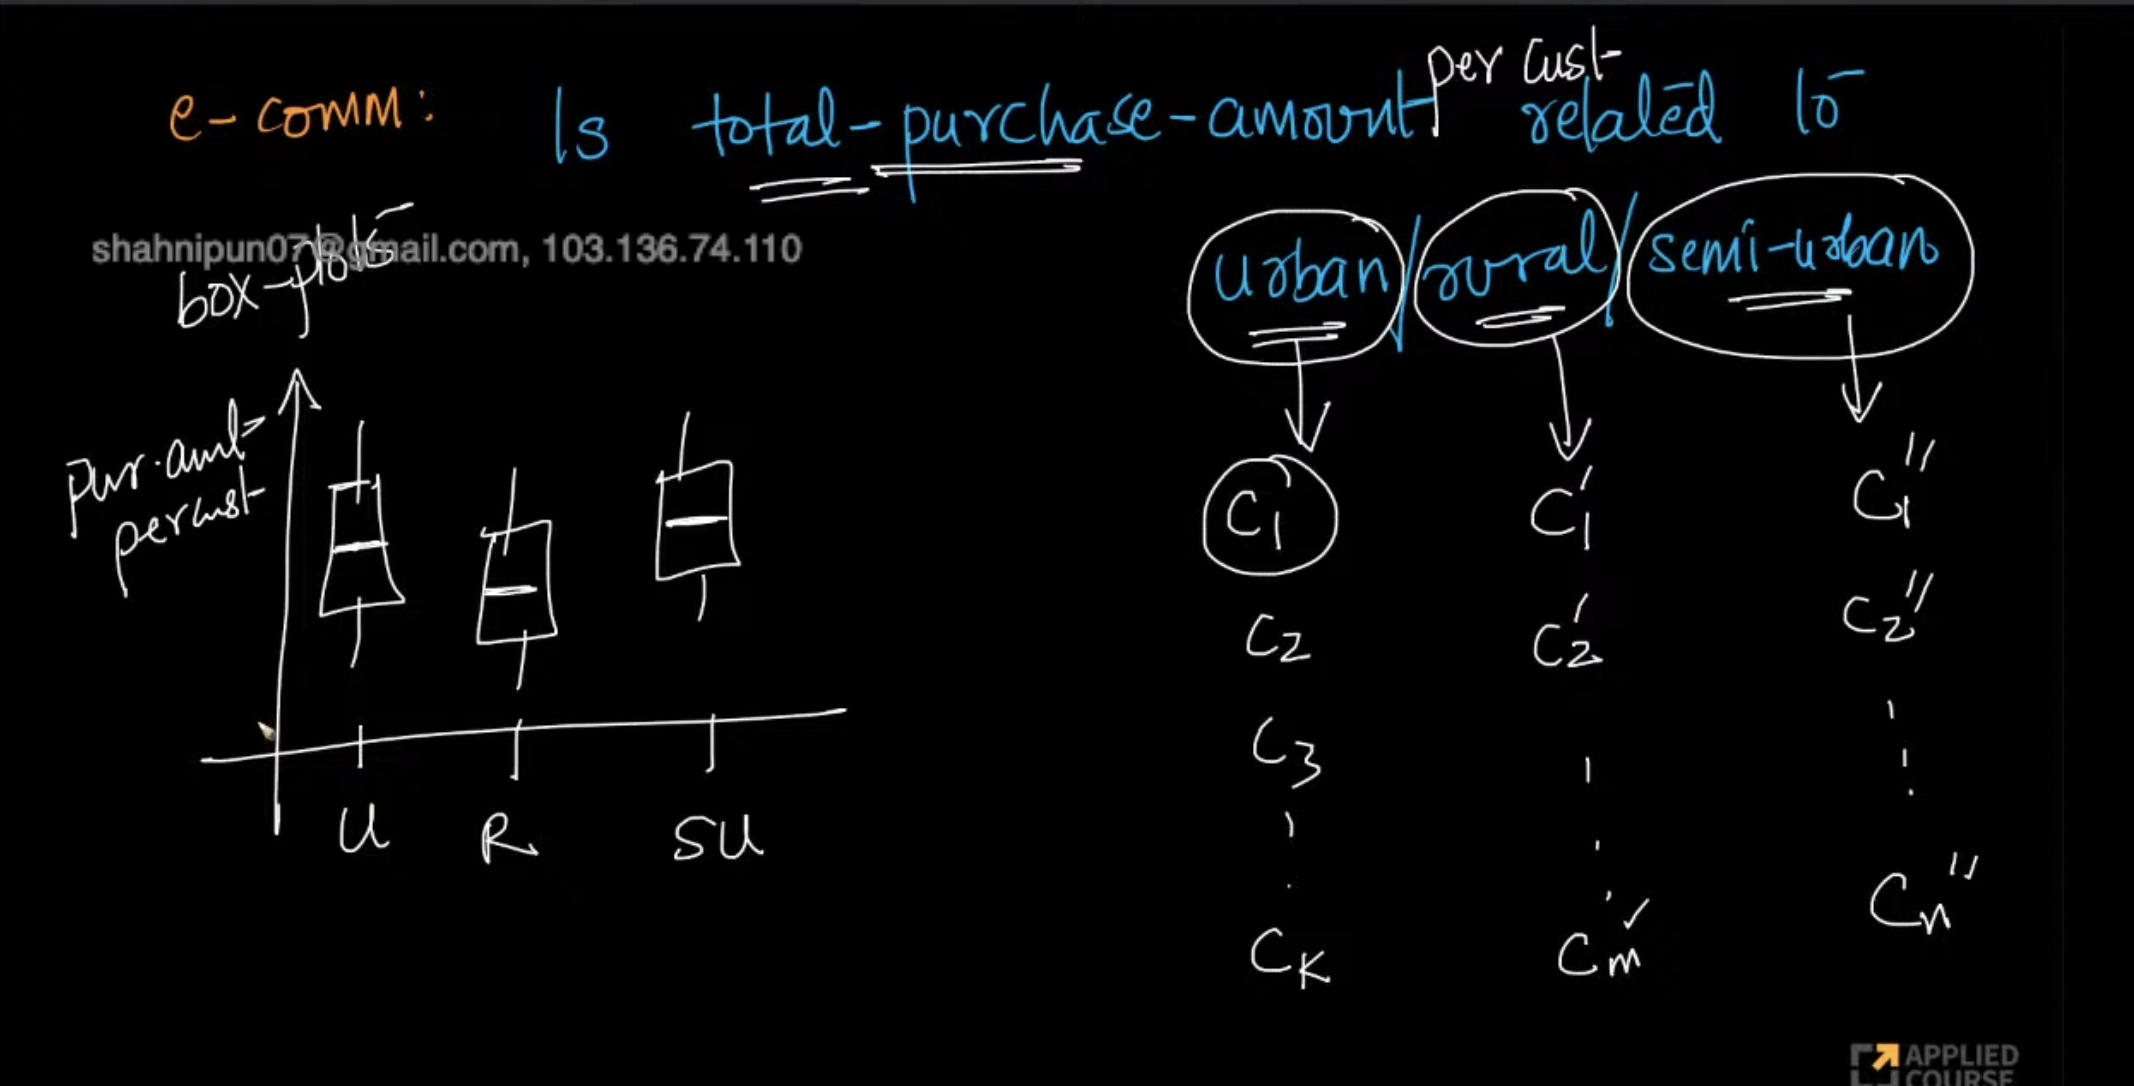 e-comm: Is total-purchase-amount per cust related to
urban/rural/semi-urban
shahnipun07@gmail.com, 103.136.74.110
box-plots
pur.amt
per cust
U R SU
C1 C1' C1''
C2 C2' C2''
C3
CK Cm' Cn''
APPLIED
COURSE